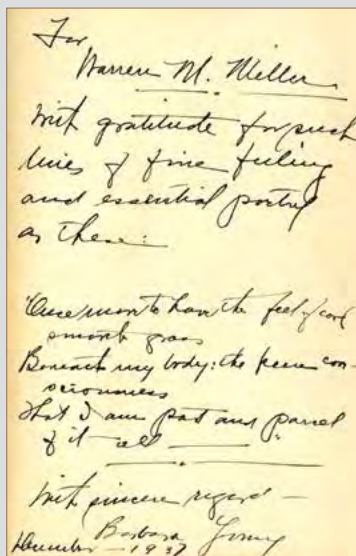 For
Warren M. Miller
With gratitude for such
lines of fine feeling
and essential poetry
as these:
"Once more to have the feel of cool
smooth grass
Beneath my body: the keen con-
sciousness
That I am part and parcel
of it all ——"
With sincere regard —
Barbara Young
December — 1937